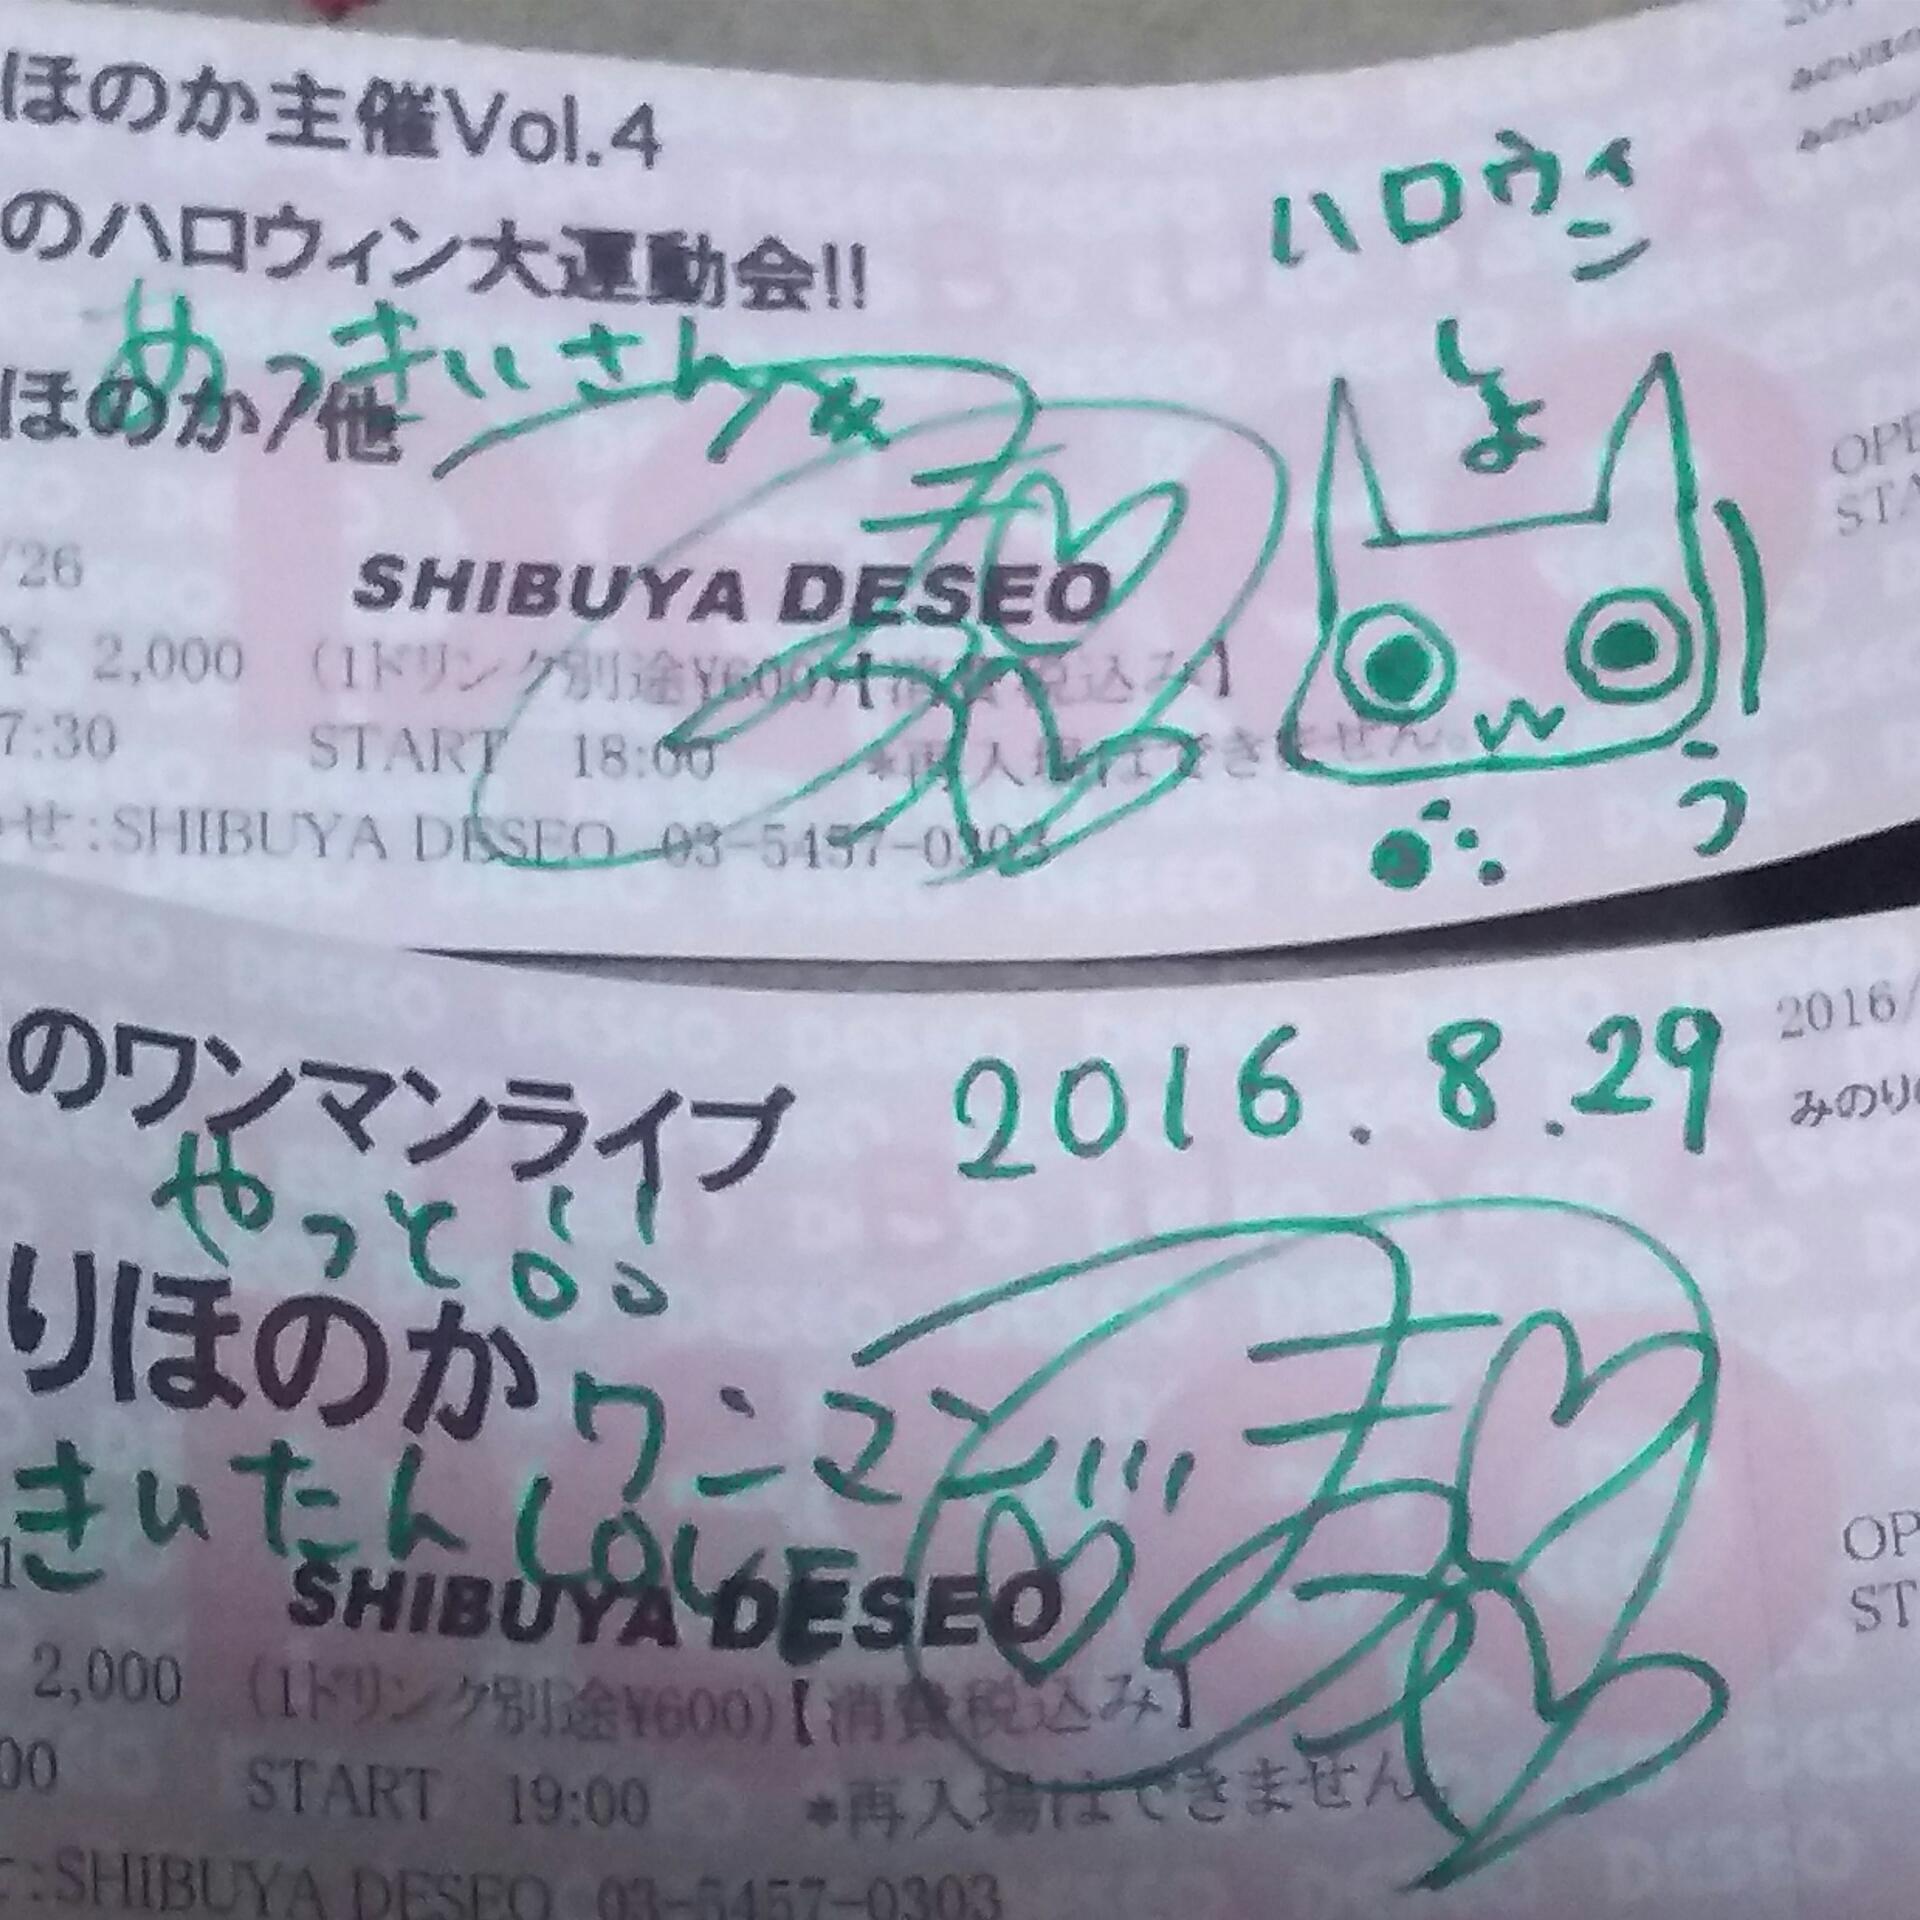 ほのか主催Vol.4
のハロウィン大運動会!!
ハロウィン
めっきぃさん
ほのか/他
しょ
OPE
STA
/26
SHIBUYA DESEO
¥ 2,000 (1ドリンク別途¥600)【消費税込み】
7:30 START 18:00 *再入場はできません。
せ:SHIBUYA DESEO 03-5457-0303
のワンマンライブ
2016.8.29
2016/
みのり
やっと!!
りほのか
ワンマン
きぃたん LOVE
OP
ST
SHIBUYA DESEO
2,000 (1ドリンク別途¥600)【消費税込み】
00 START 19:00 *再入場はできません。
:SHIBUYA DESEO 03-5457-0303